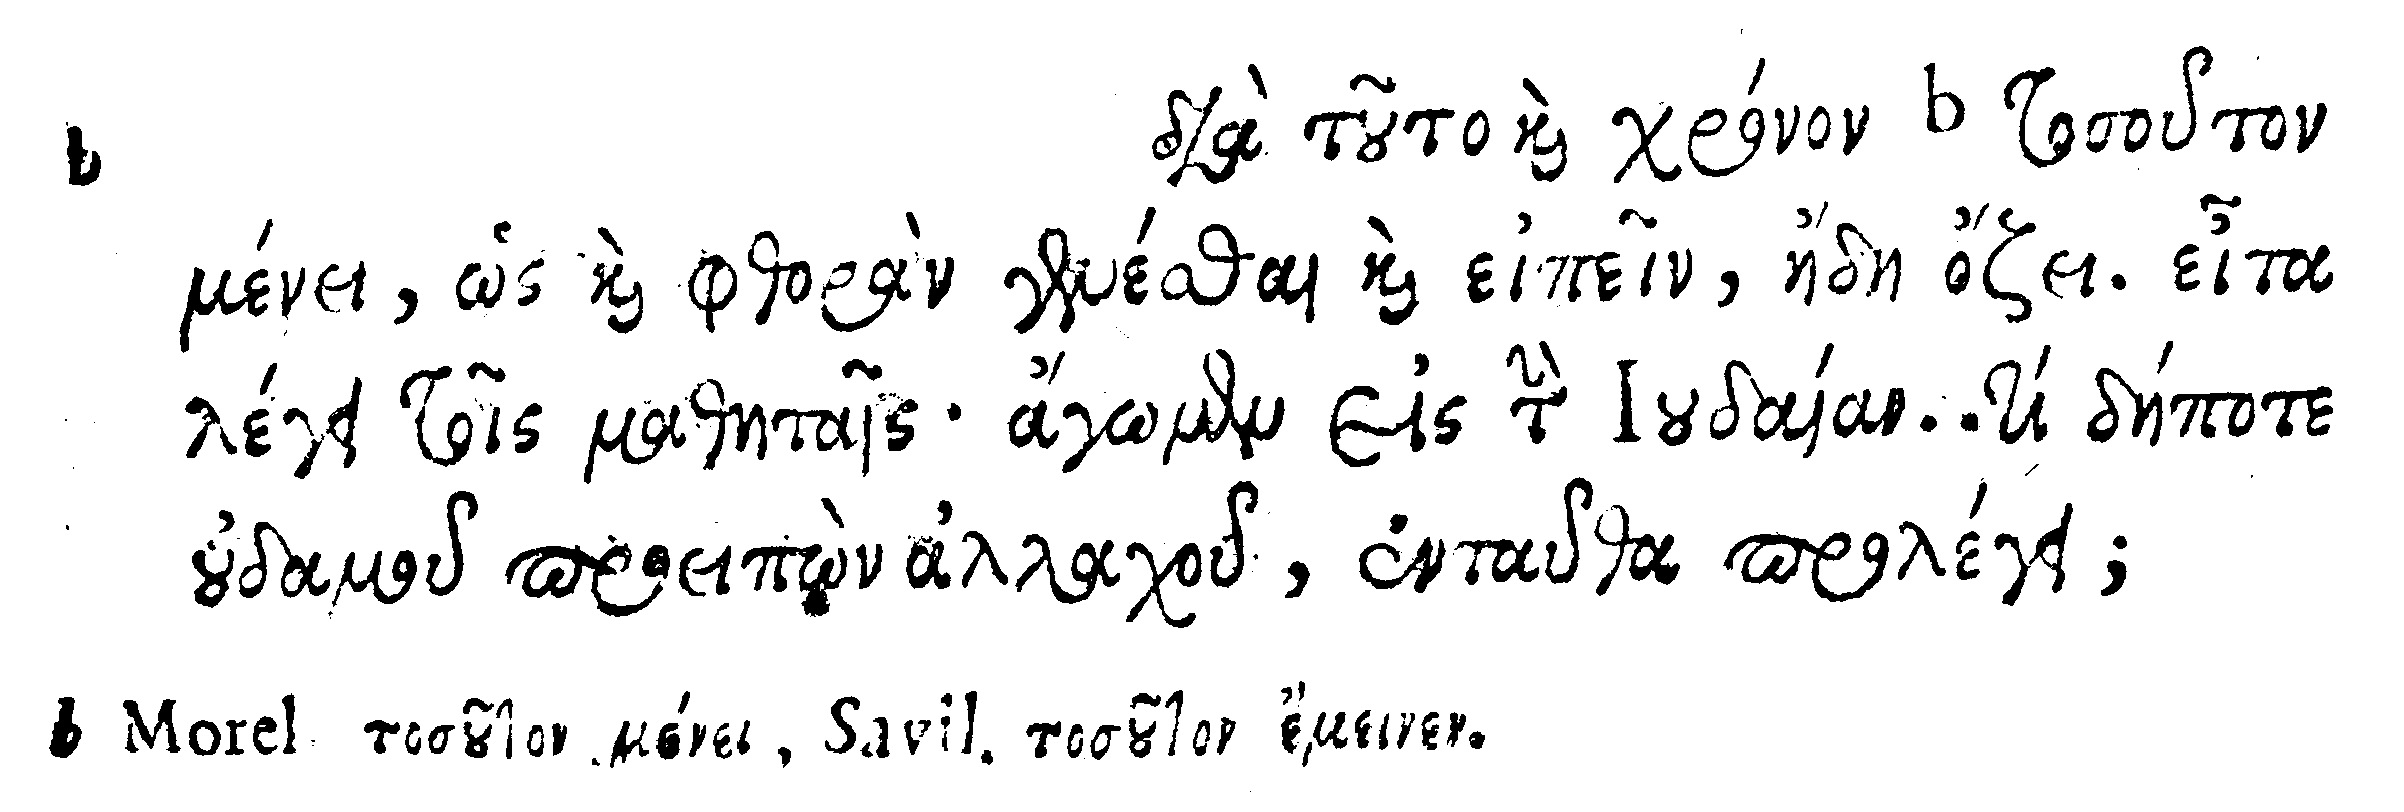 διὰ τοῦτο καὶ χρόνον b τοσοῦτον
b
μένει, ὡς καὶ φθορὰν γενέσθαι καὶ εἰπεῖν, ἤδη ὄζει. εἶτα
λέγει τοῖς μαθηταῖς· ἄγωμεν εἰς τὴν Ἰουδαίαν.. τί δήποτε
οὐδαμοῦ προειπὼν ἀλλαχοῦ, ἐνταῦθα προλέγει;
b Morel. τοσοῦτον μένει, Savil. τοσοῦτον ἔμεινεν.